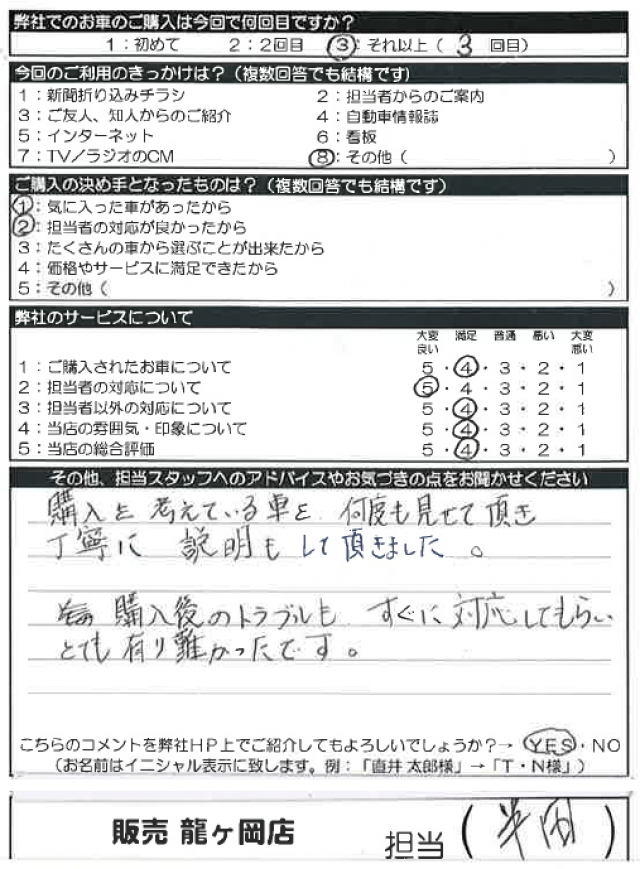 弊社でのお車のご購入は今回で何回目ですか？
1：初めて　2：2回目　③：それ以上（ 3 回目）
今回のご利用のきっかけは？（複数回答でも結構です）
1：新聞折り込みチラシ　2：担当者からのご案内
3：ご友人、知人からのご紹介　4：自動車情報誌
5：インターネット　6：看板
7：TV／ラジオのCM　⑧：その他（　　　）
ご購入の決め手となったものは？（複数回答でも結構です）
①：気に入った車があったから
②：担当者の対応が良かったから
3：たくさんの車から選ぶことが出来たから
4：価格やサービスに満足できたから
5：その他（　　　）
弊社のサービスについて
大変良い　満足　普通　悪い　大変悪い
1：ご購入されたお車について　5・④・3・2・1
2：担当者の対応について　⑤・4・3・2・1
3：担当者以外の対応について　5・④・3・2・1
4：当店の雰囲気・印象について　5・④・3・2・1
5：当店の総合評価　5・④・3・2・1
その他、担当スタッフへのアドバイスやお気づきの点をお聞かせください
購入を考えている車を 何度も見せて頂き
丁寧に 説明も して頂きました。
購入後のトラブルも すぐに対応してもらい
とても有り難かったです。
こちらのコメントを弊社HP上でご紹介してもよろしいでしょうか？→ YES・NO
（お名前はイニシャル表示に致します。例：「直井 太郎様」→「T・N様」）
販売 龍ヶ岡店　担当（　　）